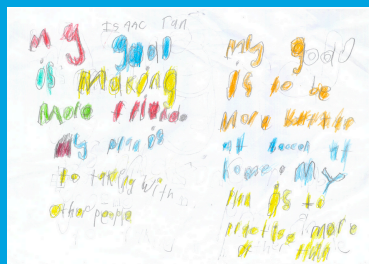 Isaac Ran
my goal
is Making
More friends.
My plan is
to talking with
other people
my goal
is to be
More
at at
home. My
Plan is to
practise more
at